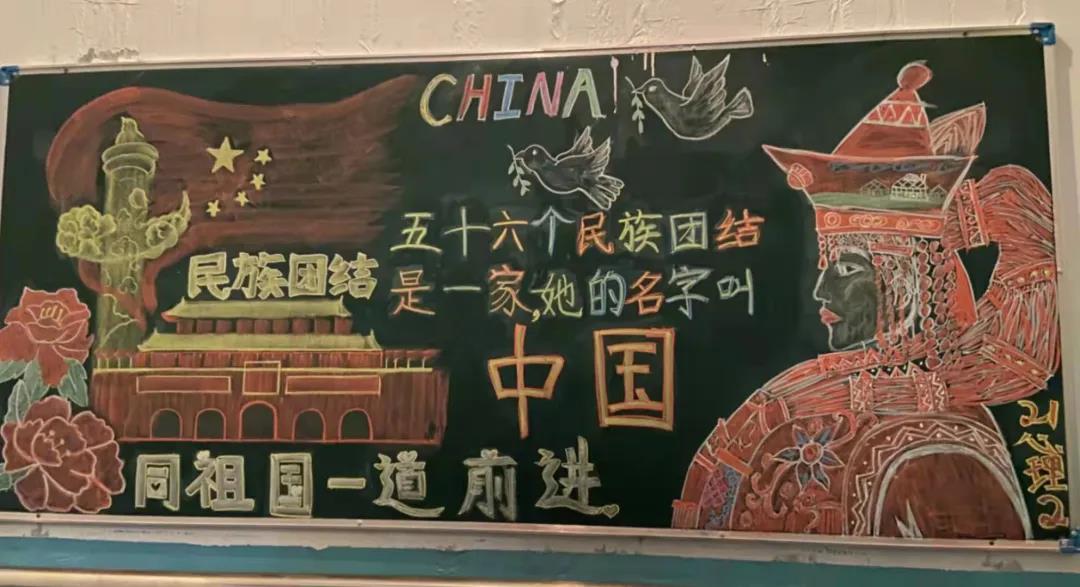 CHINA!
民族团结
五十六个民族团结
是一家,她的名字叫
中国
同祖国一道前进
21心理2